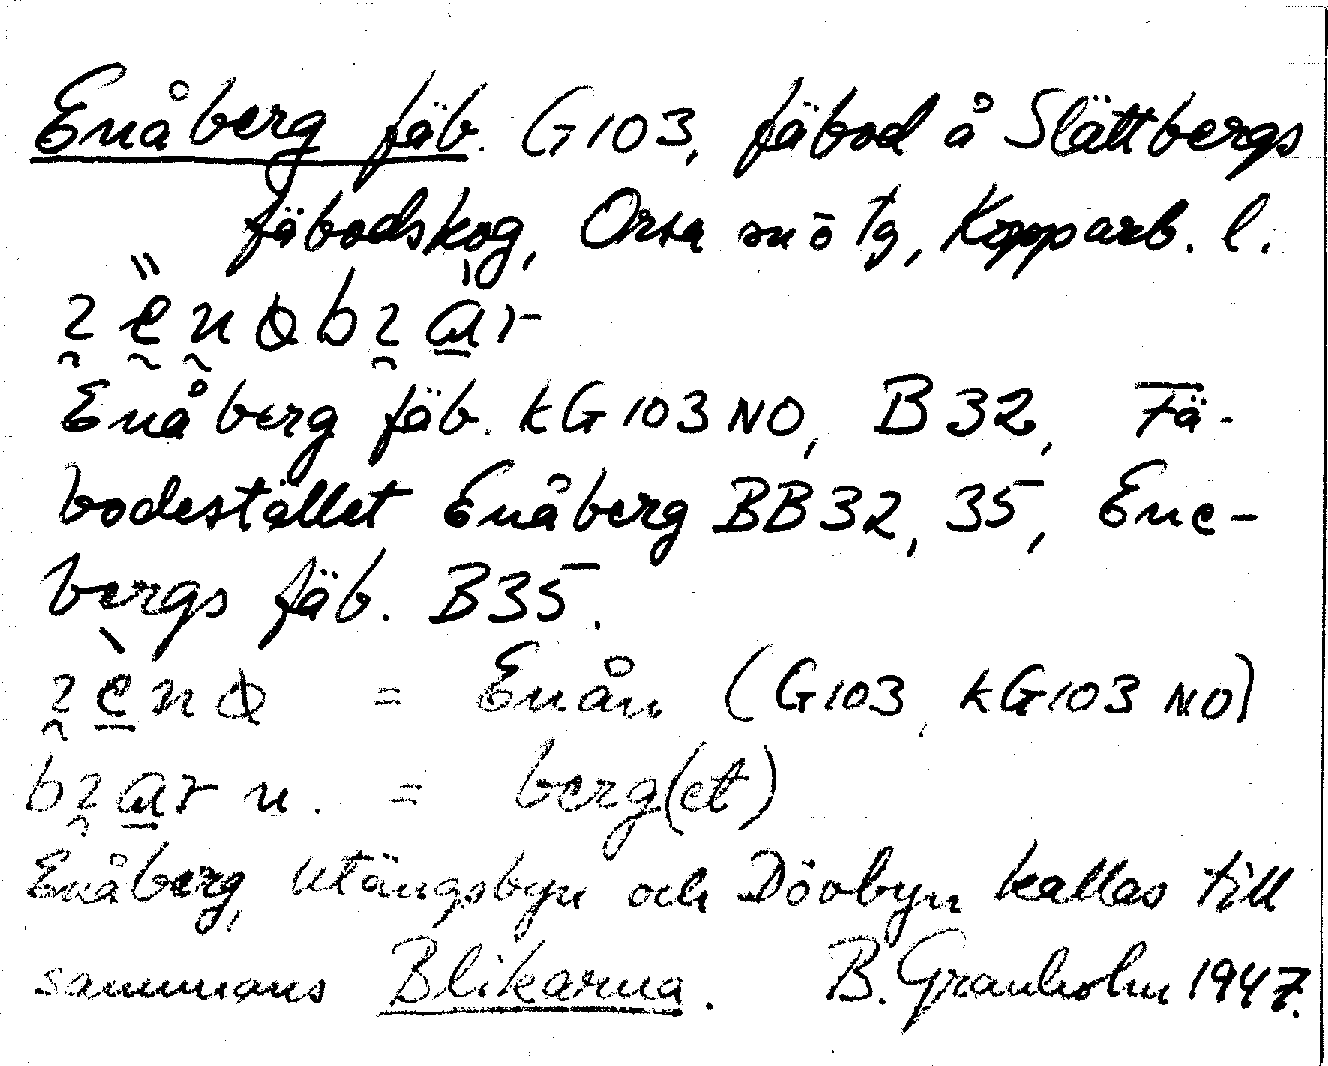 Enåberg fäb. G103, fäbod å Slättbergs
fäbodskog, Orsa sn ö tg, Kopparb. l.
Enåberg fäb. kG103 NO, B32, Fä-
bodestället Enåberg BB32, 35, Ene-
bergs fäb. B35.
= Enån (G103, kG103 NO)
= berg(et)
Enåberg, Utängsbyn och Dövbyn kallas till
sammans Blikarna. B. Granholm 1947.